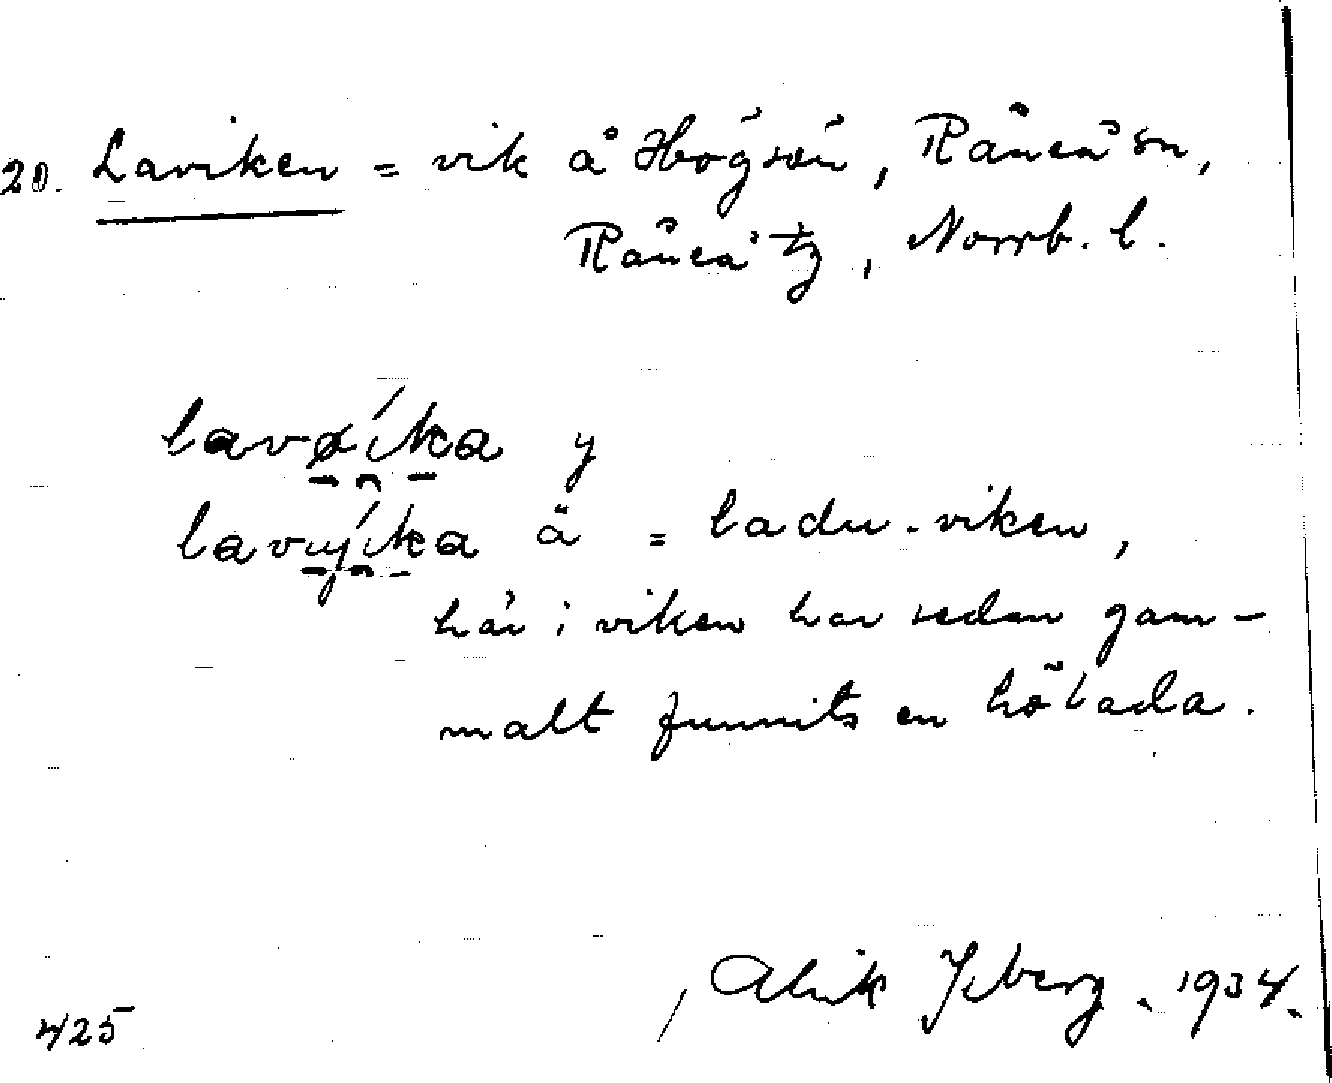 20. Laviken = vik å Högsön, Råneå sn,
Råneå tg, Norrb. l.
y
ä = ladu-viken,
här i viken har sedan gam-
malt funnits en hölada.
1934.
425